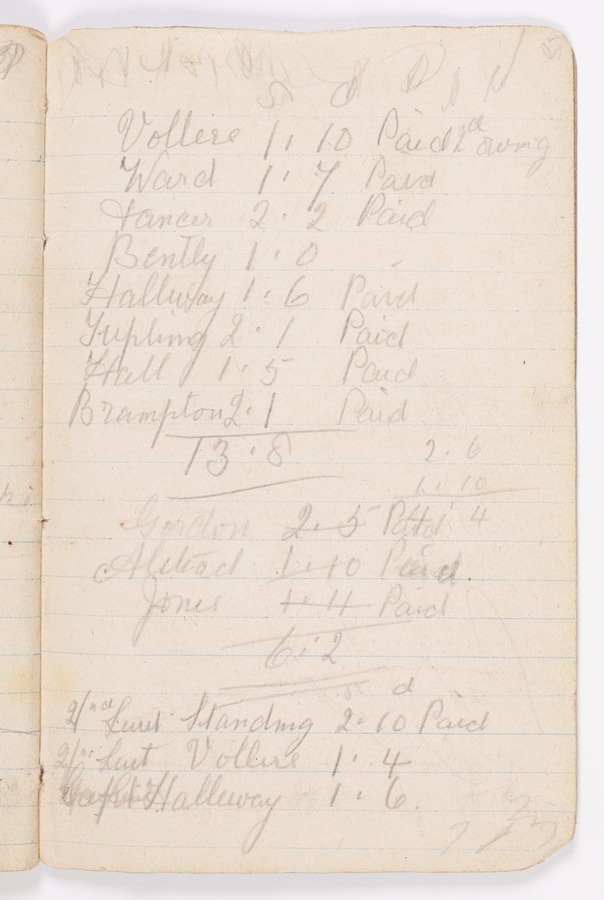 S. d
Vollere 1 . 10 Paid 2d owing
Ward 1 . 7 Paid
Tancer 2 . 2 Paid
Bently 1 . 0
Halluway 1 . 6 Paid
Tupling 2 . 1 Paid
Hall 1 . 5 Paid
Brampton 2 . 1 Paid
13 . 8
2 . 6
1 . 10
Gordon 2 . 5 Paid 4 . 4
1 . 10 Paid
Jones 1 . 4 Paid
6 . 2
s d
2/nd Lieut Standing 2 . 10 Paid
2/nd Lieut Vollere 1 . 4
Halleway 1 . 6.